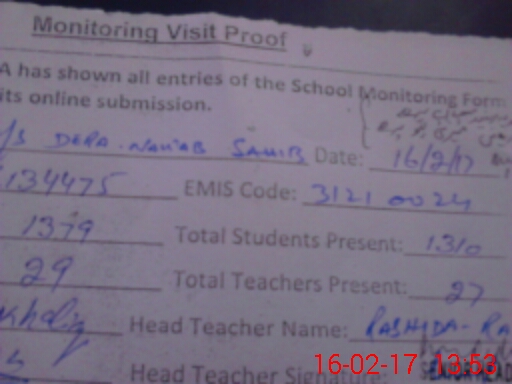 Monitoring Visit Proof
A has shown all entries of the School Monitoring Form
its online submission.
/S DERA NAWAB SAHIB Date: 16/2/17
134475 EMIS Code: 3121 0024
1379 Total Students Present: 1310
29 Total Teachers Present: 27
Khaliq Head Teacher Name: RASHIDA-RA
Head Teacher Signature:
16-02-17 13:53